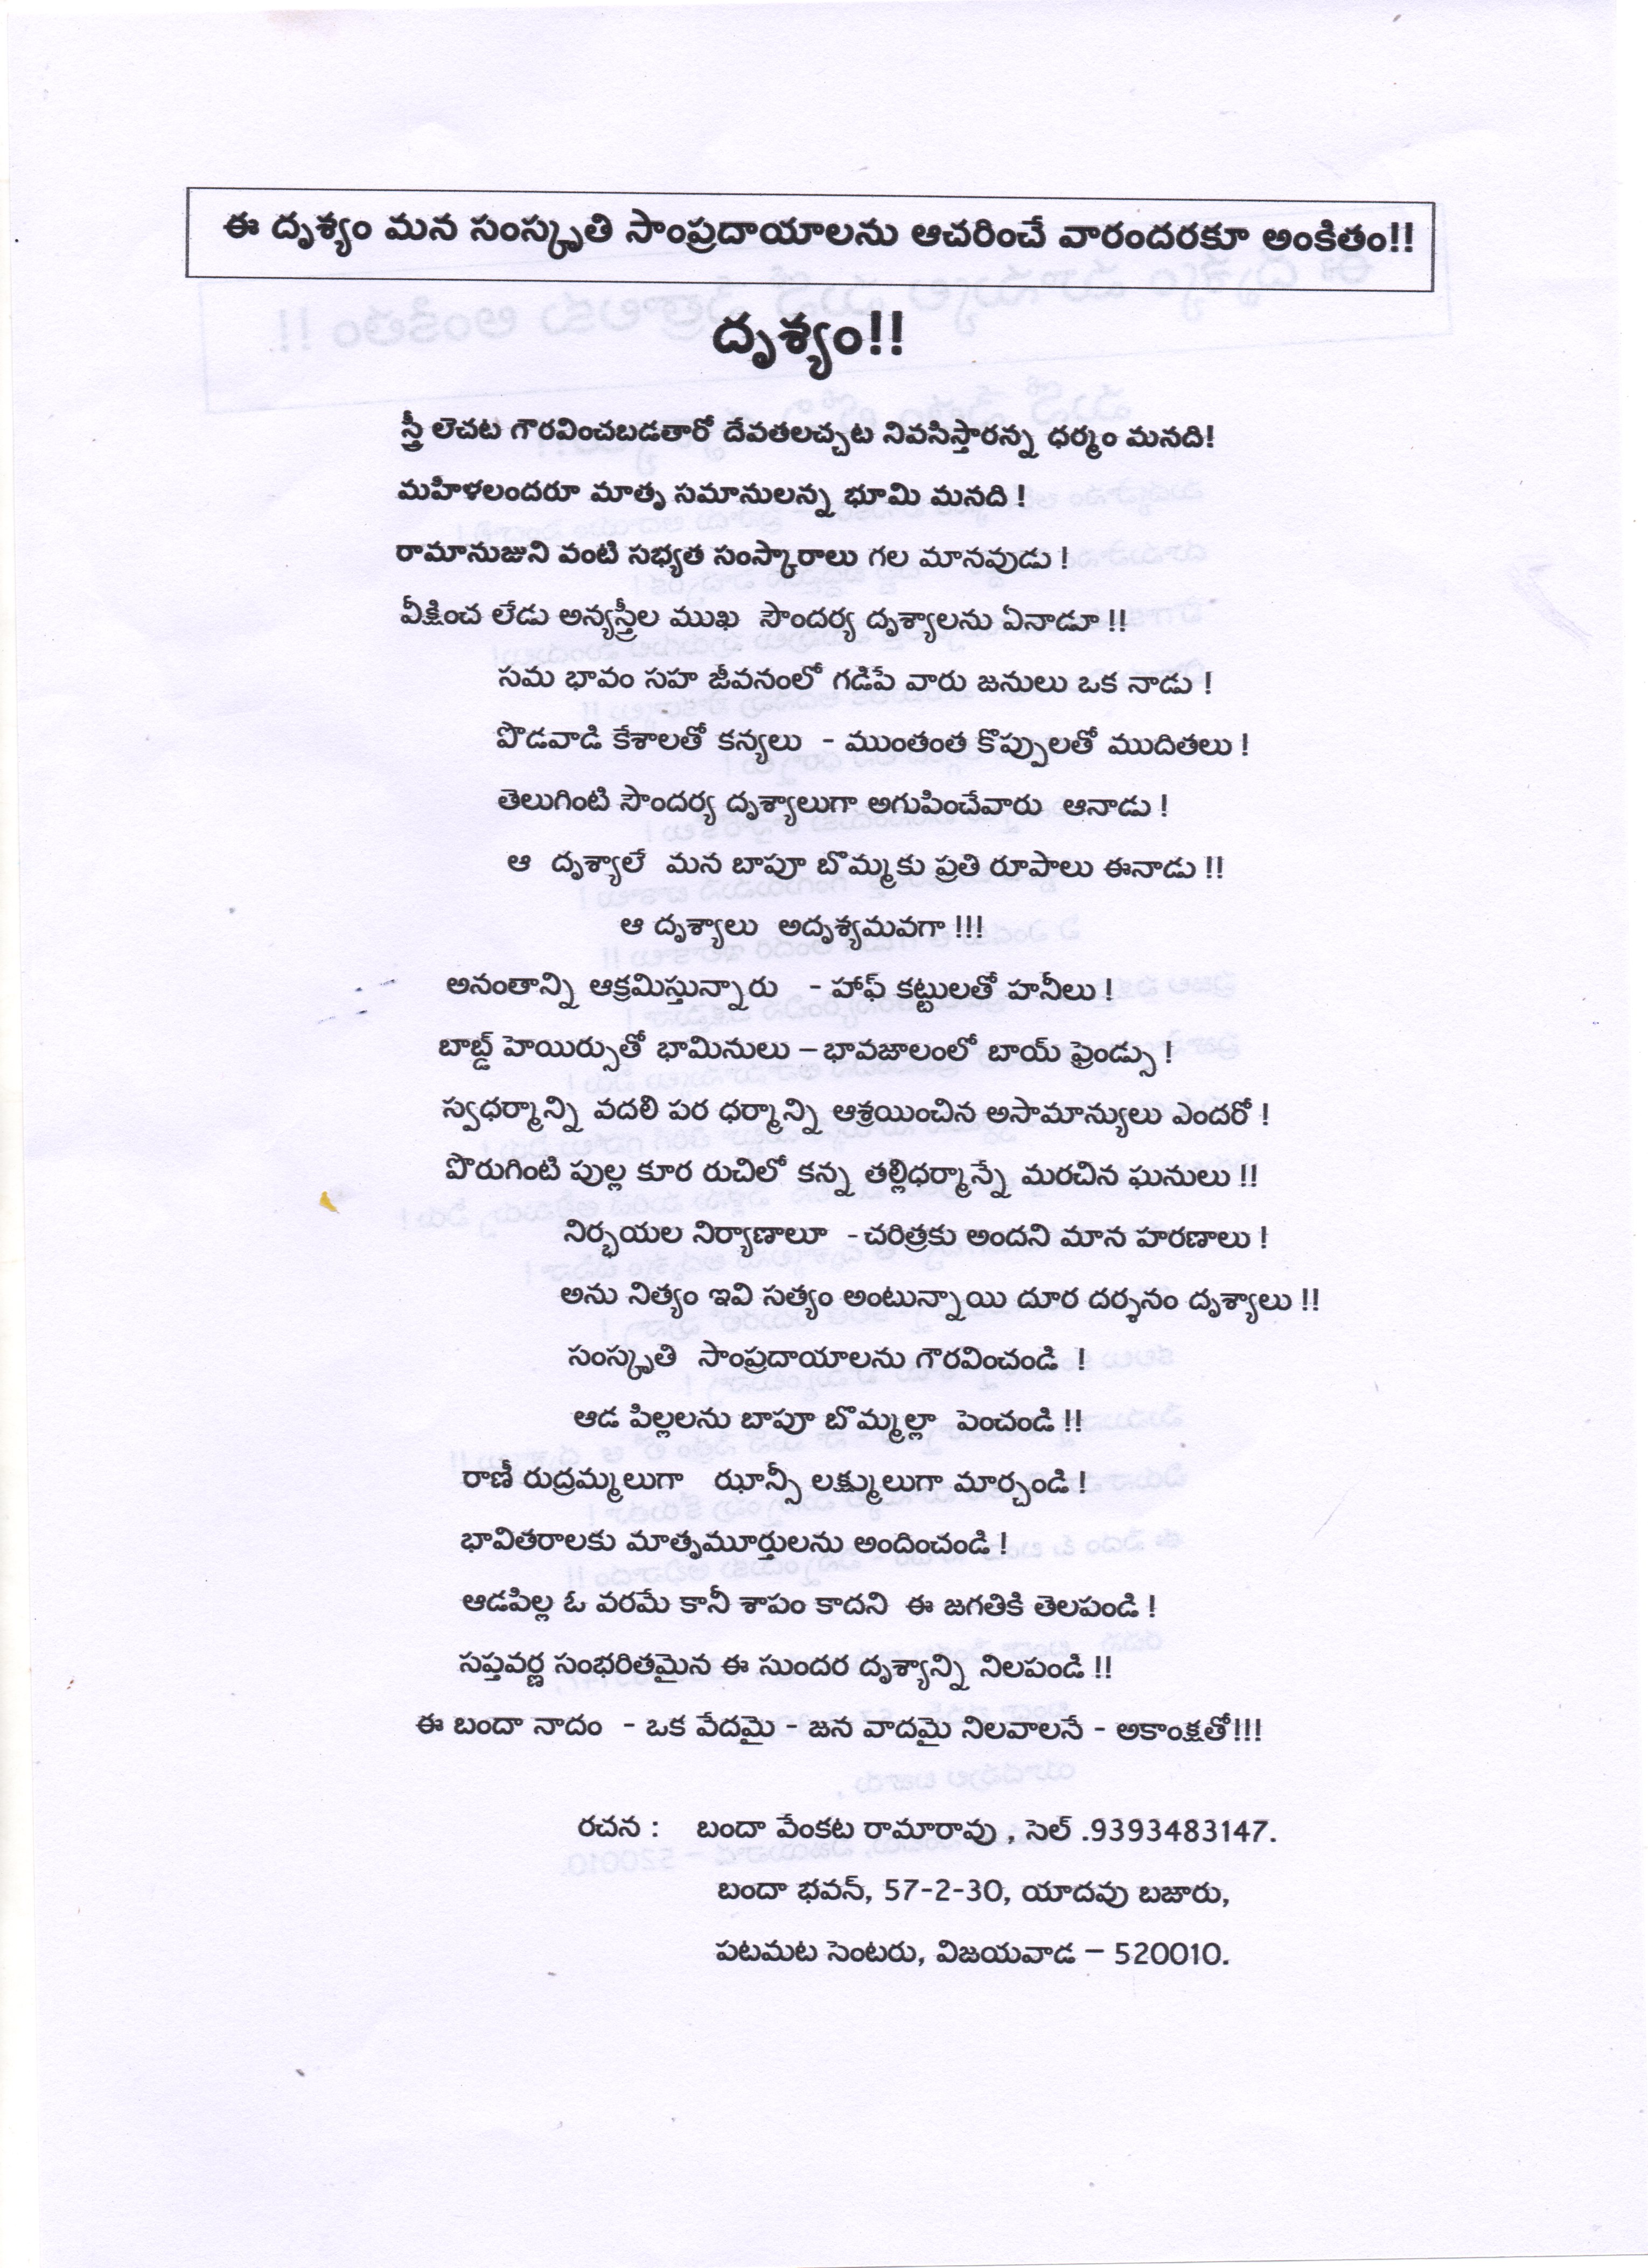 ఈ దృశ్యం మన సంస్కృతి సాంప్రదాయాలను ఆచరించే వారందరకూ అంకితం!!
దృశ్యం!!
స్త్రీ లెచట గౌరవించబడతారో దేవతలచ్చట నివసిస్తారన్న ధర్మం మనది!
మహిళలందరూ మాతృ సమానులన్న భూమి మనది !
రామానుజుని వంటి సభ్యత సంస్కారాలు గల మానవుడు !
వీక్షించ లేడు అన్యస్త్రీల ముఖ సౌందర్య దృశ్యాలను ఏనాడూ !!
సమ భావం సహ జీవనంలో గడిపే వారు జనులు ఒక నాడు !
పొడవాడి కేశాలతో కన్యలు - ముంతంత కొప్పులతో ముదితలు !
తెలుగింటి సౌందర్య దృశ్యాలుగా అగుపించేవారు ఆనాడు !
ఆ దృశ్యాలే మన బాపూ బొమ్మకు ప్రతి రూపాలు ఈనాడు !!
ఆ దృశ్యాలు అదృశ్యమవగా !!!
అనంతాన్ని ఆక్రమిస్తున్నారు - హాఫ్ కట్టులతో హనీలు !
బాబ్డ్ హెయిర్సుతో భామినులు – భావజాలంలో బాయ్ ఫ్రెండ్సు !
స్వధర్మాన్ని వదలి పర ధర్మాన్ని ఆశ్రయించిన అసామాన్యులు ఎందరో !
పొరుగింటి పుల్ల కూర రుచిలో కన్న తల్లిధర్మాన్నే మరచిన ఘనులు !!
నిర్భయల నిర్యాణాలూ - చరిత్రకు అందని మాన హరణాలు !
అను నిత్యం ఇవి సత్యం అంటున్నాయి దూర దర్శనం దృశ్యాలు !!
సంస్కృతి సాంప్రదాయాలను గౌరవించండి !
ఆడ పిల్లలను బాపూ బొమ్మల్లా పెంచండి !!
రాణీ రుద్రమ్మలుగా ఝాన్సీ లక్ష్ములుగా మార్చండి !
భావితరాలకు మాతృమూర్తులను అందించండి !
ఆడపిల్ల ఓ వరమే కానీ శాపం కాదని ఈ జగతికి తెలపండి !
సప్తవర్ణ సంభరితమైన ఈ సుందర దృశ్యాన్ని నిలపండి !!
ఈ బందా నాదం - ఒక వేదమై - జన వాదమై నిలవాలనే - అకాంక్షతో!!!
రచన : బందా వేంకట రామారావు , సెల్ .9393483147.
బందా భవన్, 57-2-30, యాదవు బజారు,
పటమట సెంటరు, విజయవాడ – 520010.